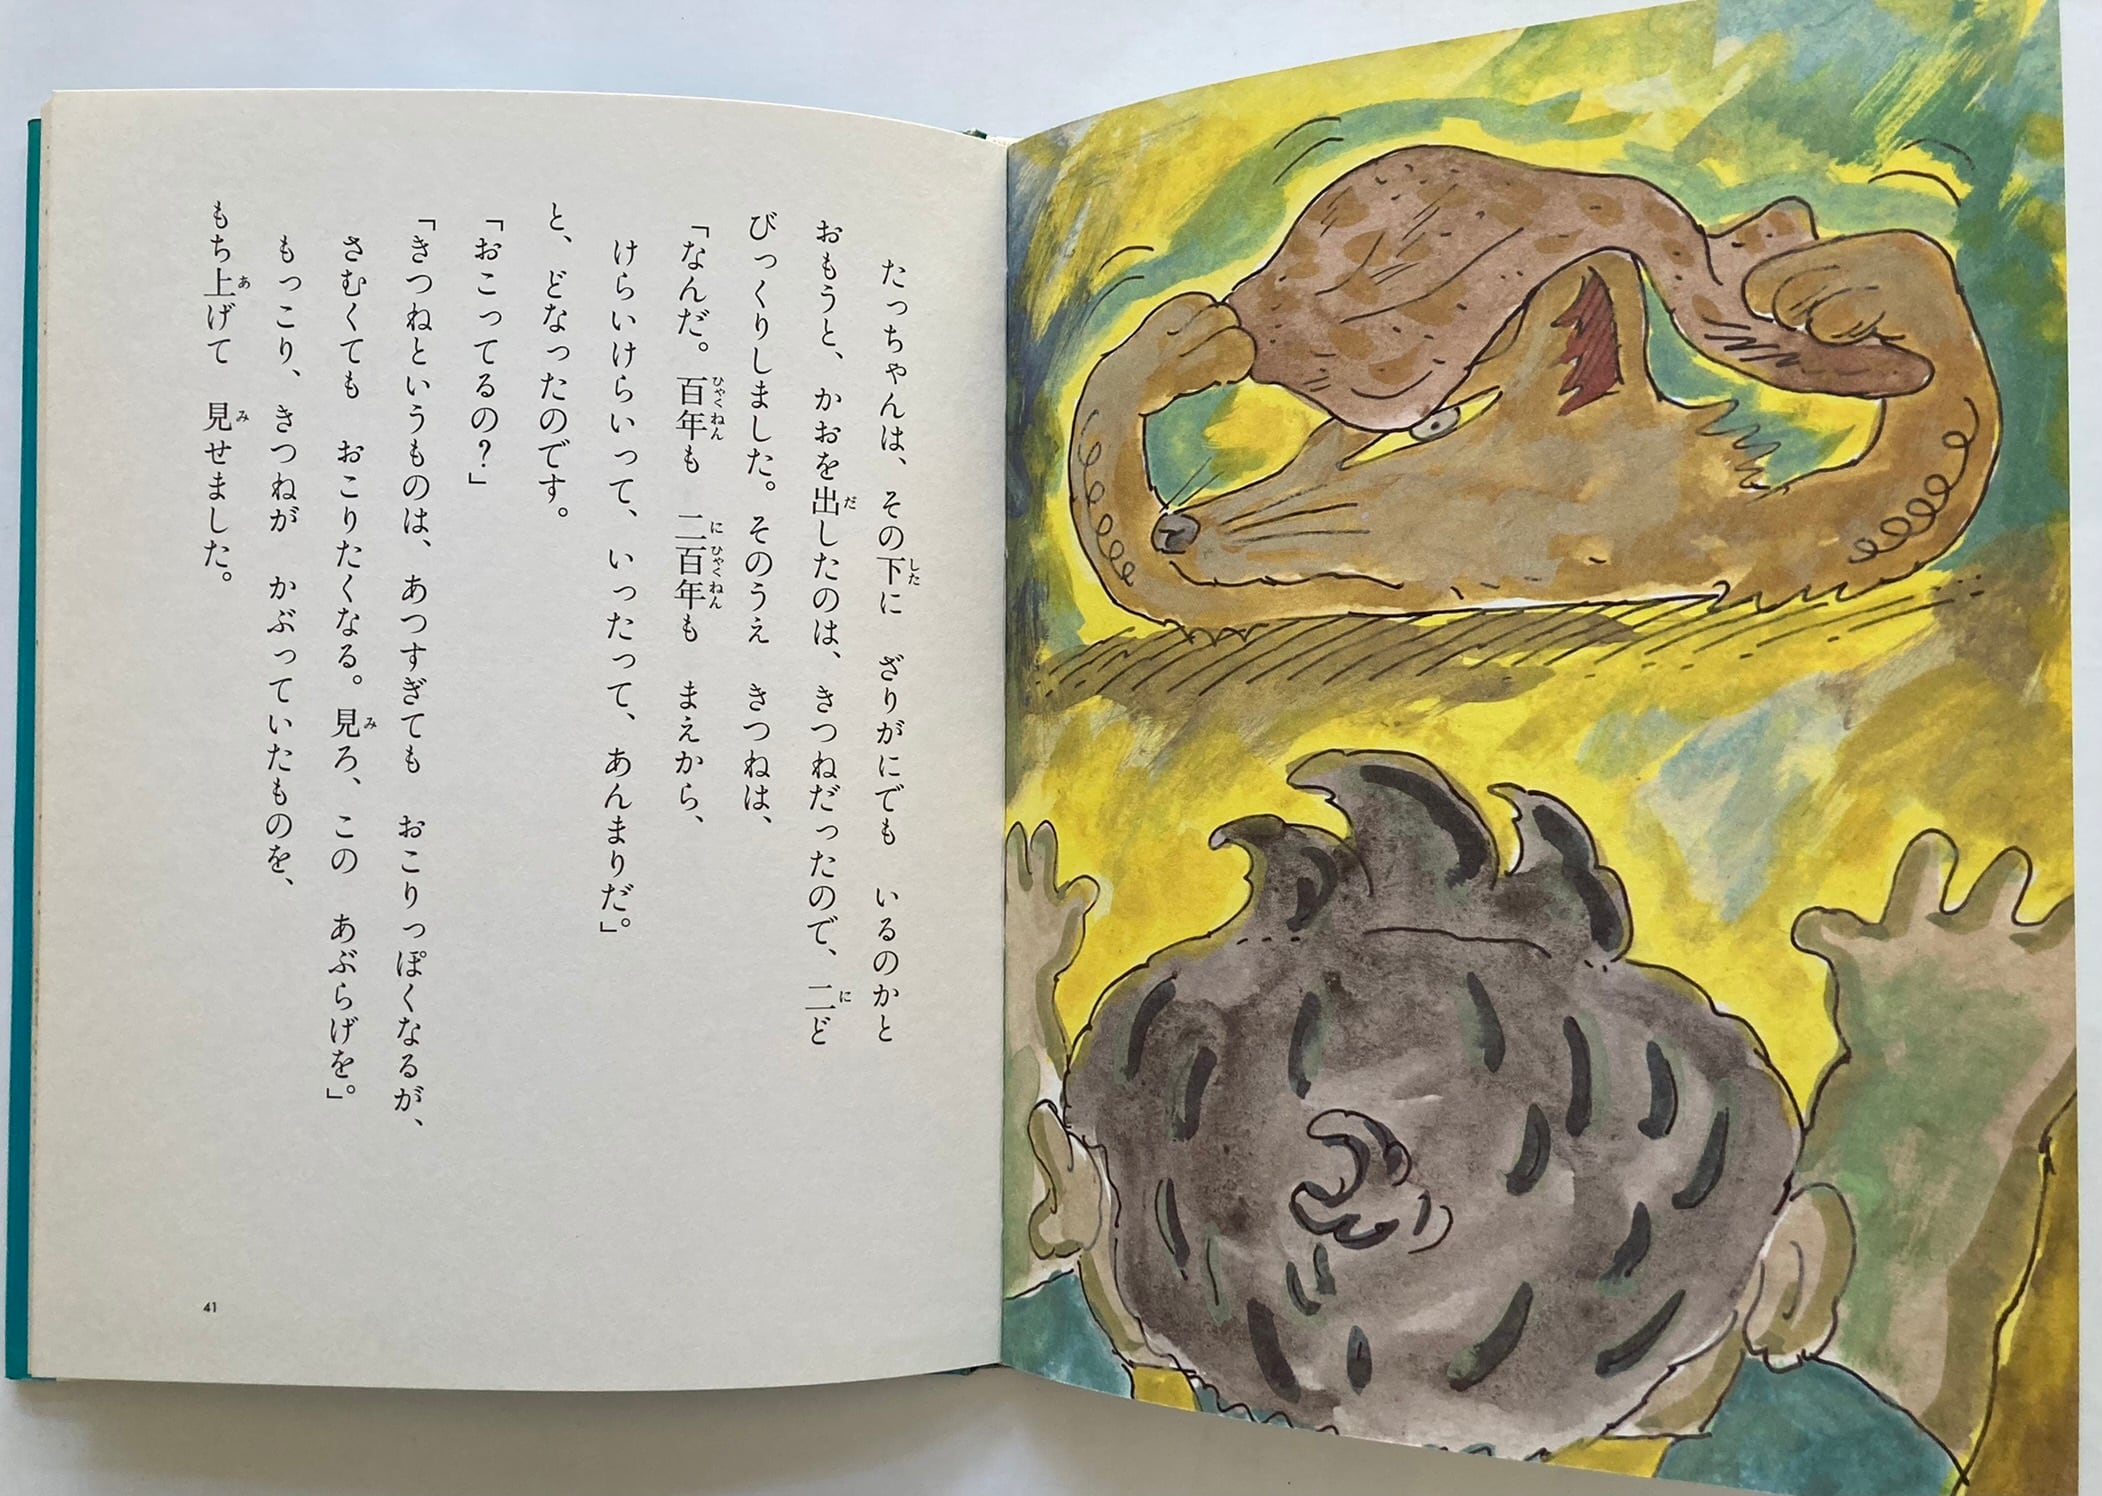 たっちゃんは、その下に　ざりがにでも　いるのかと
おもうと、かおを出したのは、きつねだったので、二ど
びっくりしました。そのうえ　きつねは、
「なんだ。百年も　二百年も　まえから、
けらいけらいって、いったって、あんまりだ。」
と、どなったのです。
「おこってるの？」
「きつねというものは、あつすぎても　おこりっぽくなるが、
さむくても　おこりたくなる。見ろ、この　あぶらげを。」
もっこり、きつねが　かぶっていたものを、
もち上げて　見せました。
41